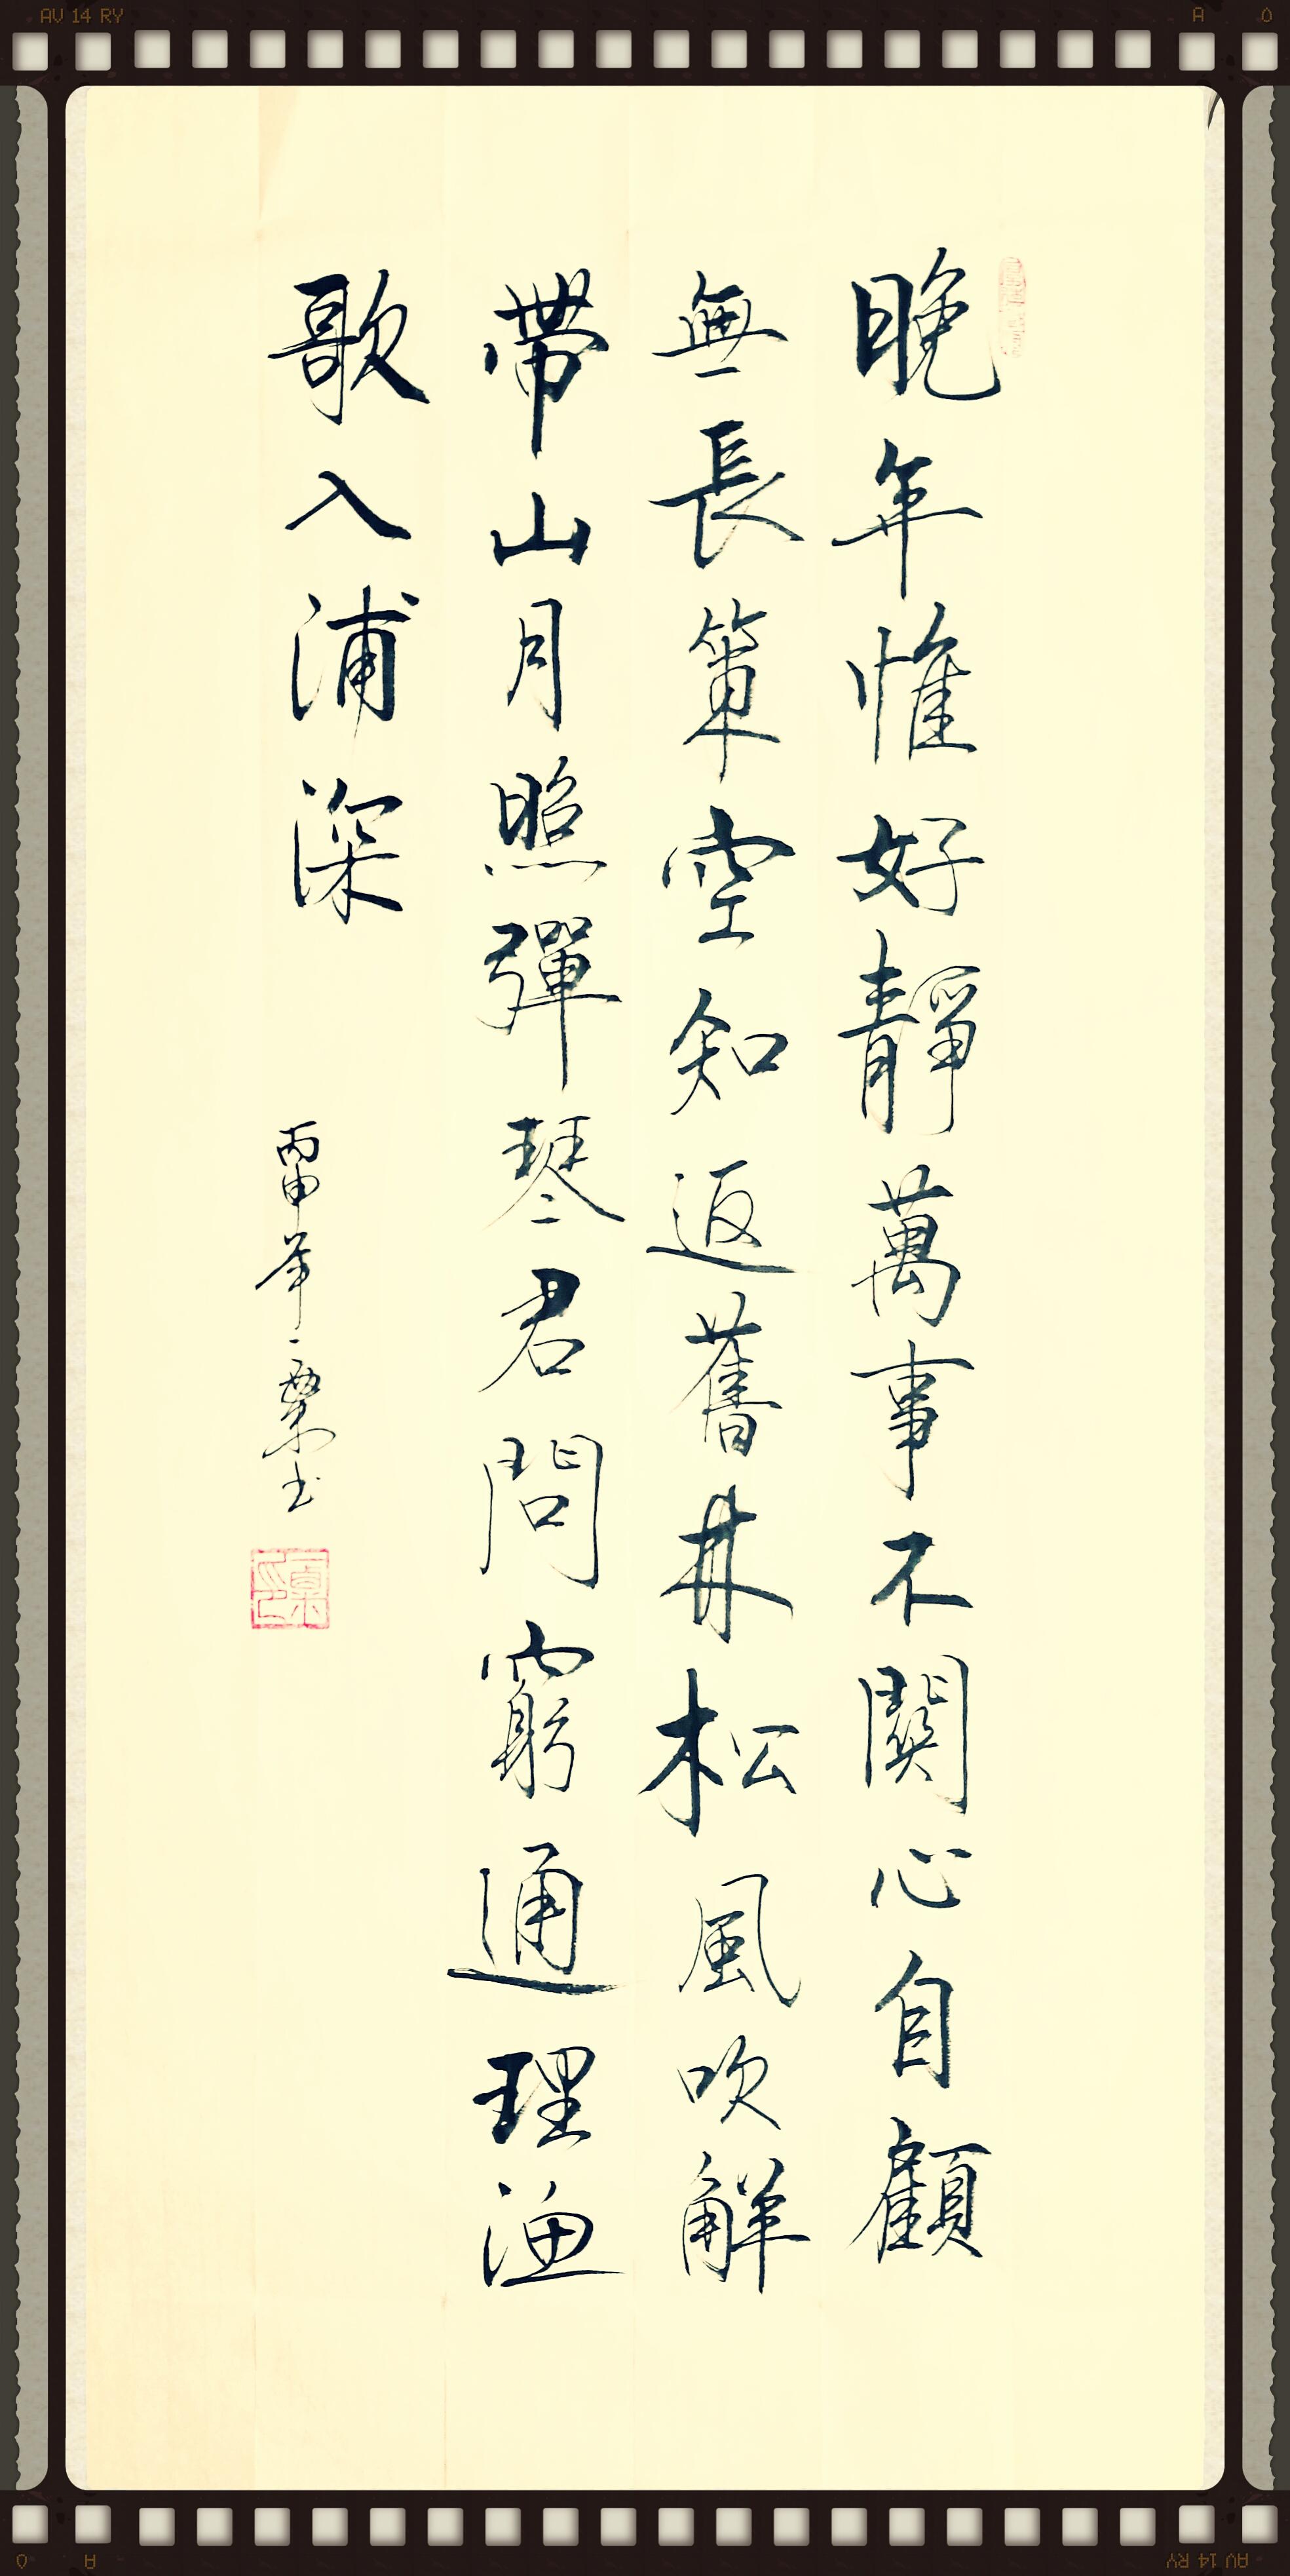 AV 14 RY
A
0
晚年惟好靜萬事不關心自顧
無長策空知返舊林松風吹解
帶山月照彈琴君問窮通理漁
歌入浦深
丙申年一粟書
0
A
AV 14 RY